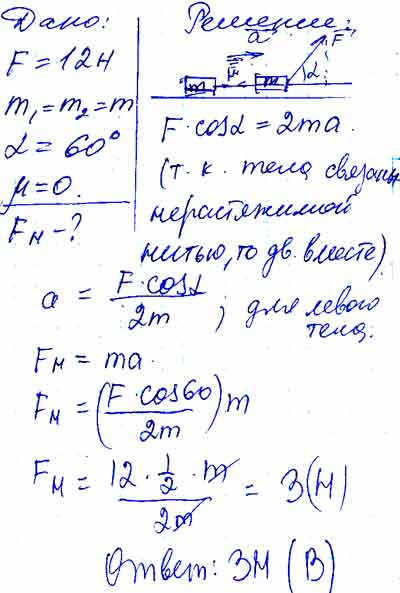 Дано:
F = 12Н
m₁ = m₂ = m
α = 60°
μ = 0.
Fн - ?
Решение:
a F
m Fн m α
F · cosα = 2ma.
(т. к. тела связаны
нерастяжимой
нитью, то дв. вместе)
a = F · cosα / 2m ; для левого
тела.
Fн = ma.
Fн = (F · cos60 / 2m) m
Fн = 12 · 1/2 · m / 2m = 3(Н)
Ответ: 3Н (В)